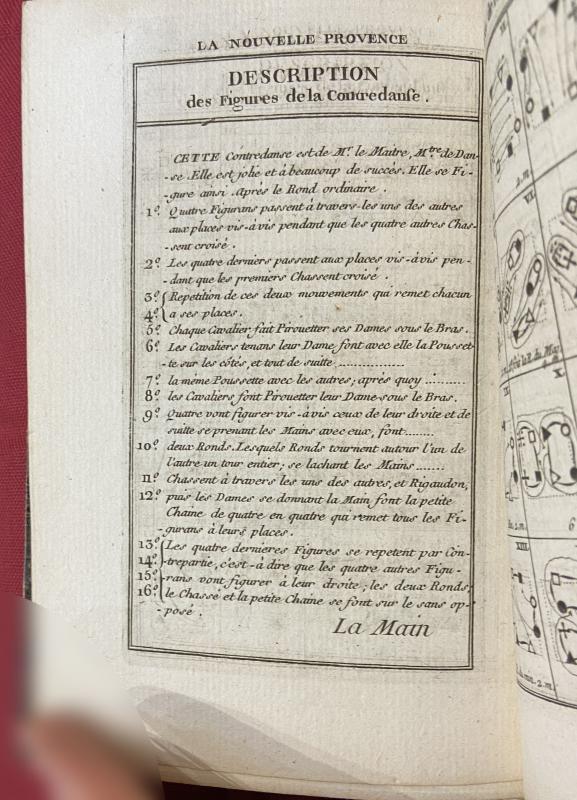 LA NOUVELLE PROVENCE
DESCRIPTION
des Figures de la Contredanse.
CETTE Contredanse est de Mr. le Maitre, Mtre. de Dan-
-se. Elle est jolie et à beaucoup de succès. Elle se Fi-
-gure ainsi. Après le Rond ordinaire.
1º. Quatre Figurans passent à travers les uns des autres
aux places vis-à-vis pendant que les quatre autres Chas-
-sent croisé.
2º. Les quatre derniers passent aux places vis-à-vis pen-
-dant que les premiers Chassent croisé.
3º. Repetition de ces deux mouvements qui remet chacun
4º. a ses places.
5º. Chaque Cavalier fait Pirouetter ses Dames sous le Bras.
6º. Les Cavaliers tenans leur Dame, font avec elle la Pousset-
-te sur les côtés, et tout de suitte ................
7º. la même Poussette avec les autres; après quoy ..........
8º. les Cavaliers font Pirouetter leur Dame sous le Bras.
9º. Quatre vont figurer vis-à-vis ceux de leur droite et de
suitte se prenant les Mains avec eux, font.......
10º. deux Ronds. Lesquels Ronds tournent autour l'un de
l'autre un tour entier; se lachant les Mains.......
11º. Chassent à travers les uns des autres, et Rigaudon,
12º. puis les Dames se donnant la Main font la petite
Chaine de quatre en quatre qui remet tous les Fi-
-gurans à leurs places.
13º. Les quatre dernieres Figures se repetent par Con-
14º. -trepartie, c'est-à dire que les quatre autres Figu-
15º. -rans vont figurer à leur droite; les deux Ronds,
16º. le Chassé et la petite Chaine se font sur le sans op-
-posé.
La Main
VI.
X.
XIII.